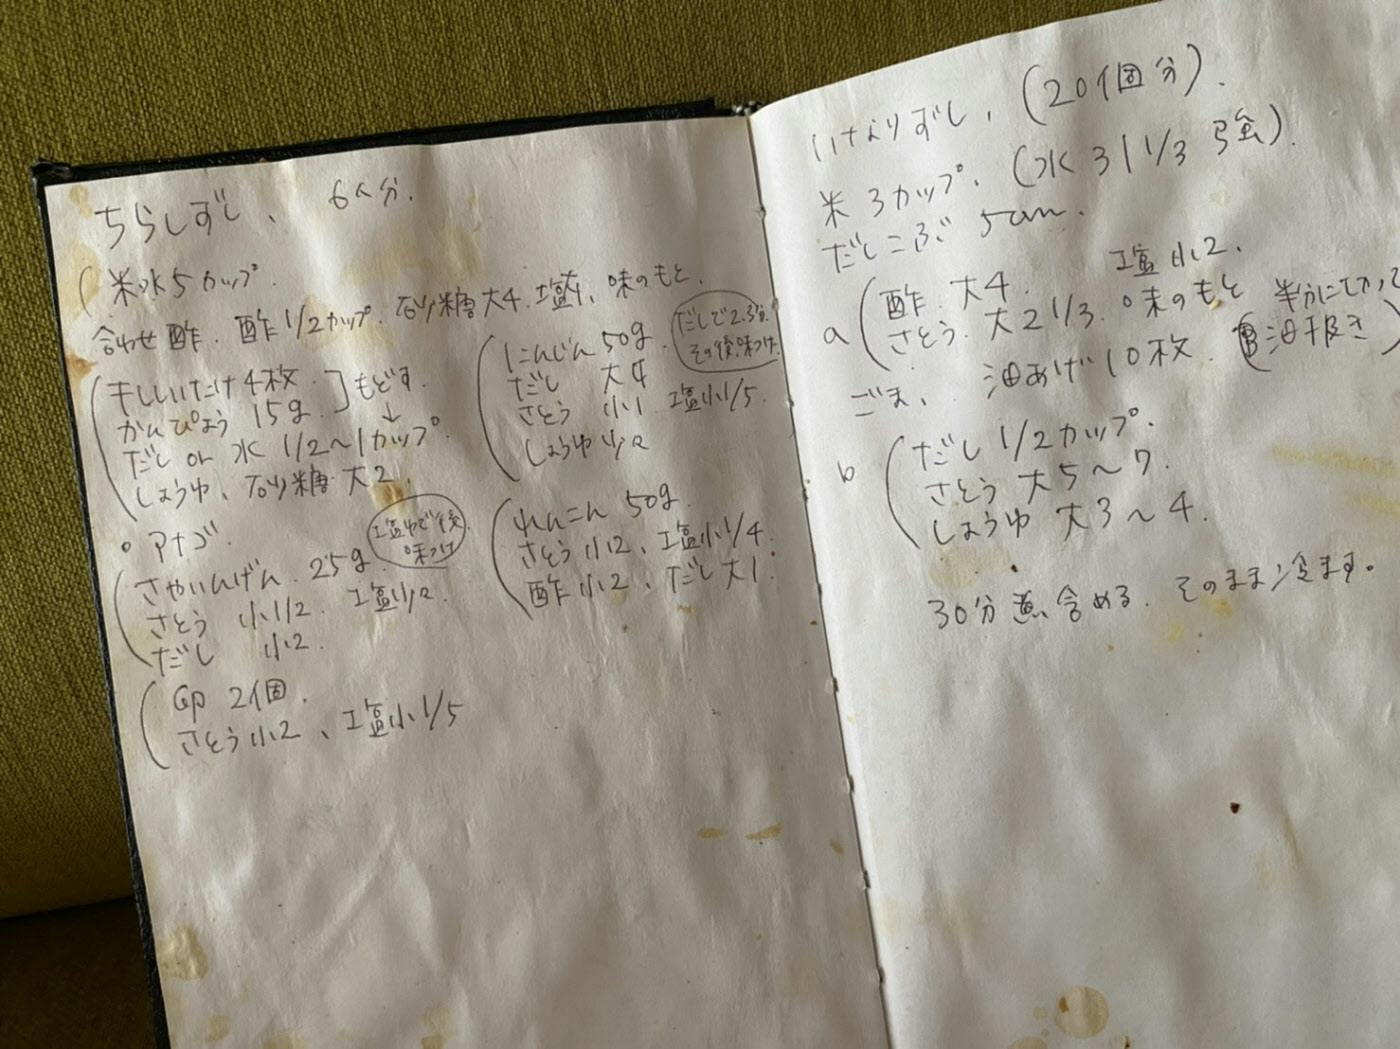 ちらしずし、 6人分.
(米水5カップ.
合わせ酢. 酢1/2カップ. 砂糖大4. 塩 、味のもと.
干ししいたけ4枚.
かんぴょう 15g. ]もどす.
↓
だし or 水 1/2〜1カップ.
しょうゆ、砂糖 大2.
。アナゴ.
さやいんげん. 25g. 塩ゆで後.味つけ
さとう 小1/2. 塩少々.
だし 小2.
卵 2個.
さとう小2、塩小1/5
にんじん 50g. だしで2.3分.その後、味つけ.
だし 大4
さとう 小1 塩小1/5.
しょうゆ少々
れんこん 50g.
さとう小2、塩小1/4.
酢小2、だし大1.
いなりずし. (20個分).
米 3カップ. (水 3 1/3 強).
だしこぶ 5cm.
a (酢. 大4. 塩小2.
さとう. 大2 1/3. 味のもと
ごま、 油あげ10枚. 半分に (油抜き)
b (だし 1/2カップ.
さとう 大5〜7.
しょうゆ 大3〜4.
30分煮含める. そのまま冷ます。